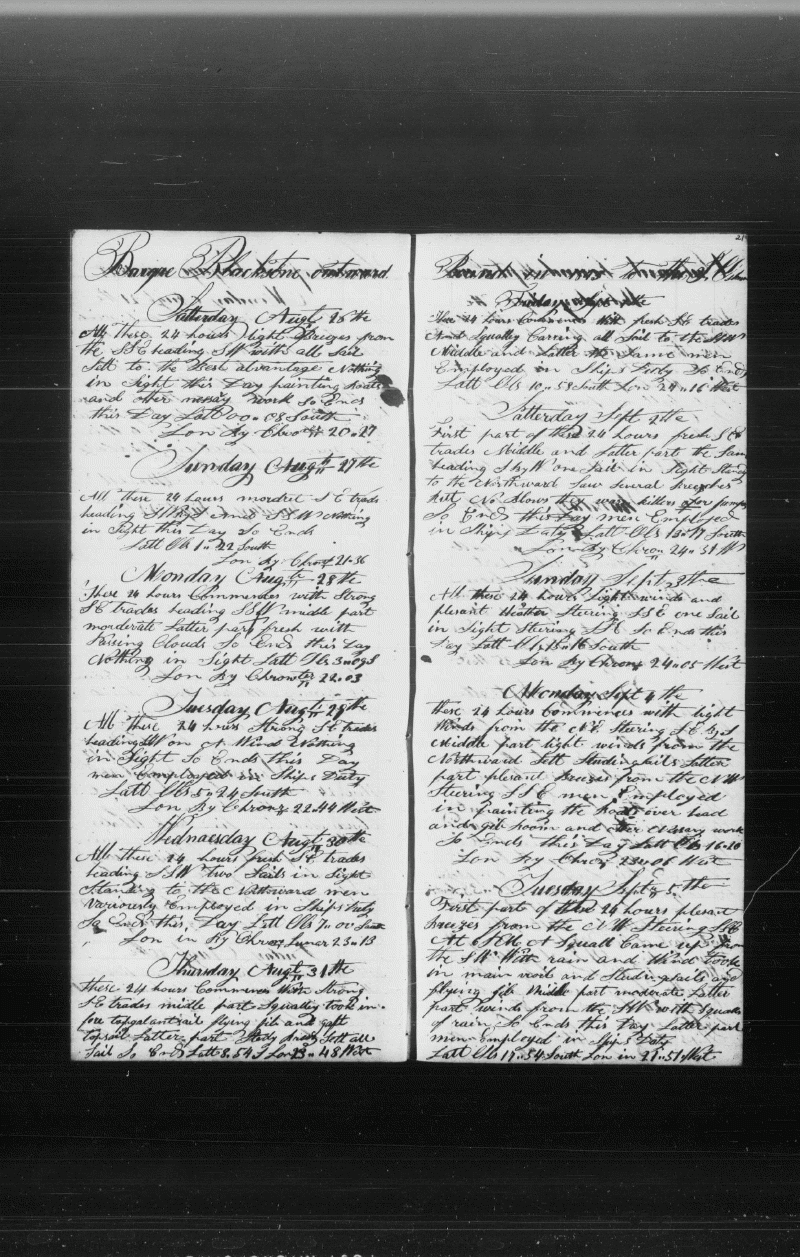 Barque Blackstone outward
Satterday Augt 26 the
All these 24 hours light Brieges from
the SSE heading SW with all Sail
Sett to the Best advantage Nothing
in Sight this Day painting
and other work So Ends
this Day Latt 00 " 08 South
Lon By Chro 20 " 27
Sunday Augt 27 the
All these 24 hours S E trads
heading and Nothing
in Sight this Day So Ends
Latt Obs 1 " 22 South
Lon By Chro 21-36
Monday Augt 28 the
These 24 hours Commences with Strong
S E trades heading SSW midle part
morderate Latter part fresh with
Passing Clouds So Ends this Day
Nothing in Sight Latt Obs 3 " 09 S
Lon By Chro 22 " 03
Tuesday Augt 29 the
All these 24 hours Strong S E trades
heading SW on A Wind Nothing
in Sight So Ends this Day
men Employed in Ships Duty
Latt Obs 5 " 24 South
Lon By Chro 22 " 44 West
Wednaesday Augt 30 the
All these 24 hours fresh S E trades
heading SSW two Sails in Sight
Standing to the Northward men
Variously Employed in Ships Duty
So Ends this Day Latt Obs 7 " 00 South
Lon in By Chro Lunar 23 " 13
Thursday Augt 31 the
these 24 hours Commences With Strong
S E trades midle part Squally took in
fore topgalantsail flying jib and gaft
topsail Latter part Sett all
Sail So Ends Latt 8 " 54 S Lon 23 " 48 West
21
Friday
These 24 hours Commences With fresh S E trades
And Squally Carring all Sail to the
Middle and Latter the Same men
Employed in Ships Duty So Ends
Latt Obs 10 " 58 South Lon 24 " 16 West
Satterday Sept 2 the
First part of these 24 hours fresh S E
trades Middle and Latter part the Same
heading S by W one Sail in Sight Standing
to the Northward Saw Several Breeches
But No Blows they were killers or jumpers
So Ends this Day men Employed
in Ships Duty Latt Obs 13 " South
Lon By Chro 24 " 31 W
Sunday Sept 3 the
All these 24 hours Light winds and
plesant Weather Steering SSE one Sail
in Sight Steering So Ends this
Day Latt Obs 15 " South
Lon By Chro 24 " 05 West
Monday Sept 4 the
these 24 hours Commences with light
Winds from the N E Steering S E By S
Middle part light winds from the
Northward Sett Studingsails Latter
part plesant Breezes from the N W
Steering SSE men Employed
in painting the over head
and gib boom and other work
So Ends this Day Latt Obs 16 " 20
Lon By Chro 23 " 06 West
Tuesday Sept 5 the
First part of these 24 hours plesant
Breezes from the N W Steering SSE
At 6 P.M. A Squall Came up from
the S W With rain and Wind took
in main and Studingsails and
flying jib Middle part moderate Latter
part winds from the S W with Squalls
of rain So Ends this Day Latter part
men Employed in Ships Duty
Latt Obs 17 " 54 South Lon in 21 " 51 West